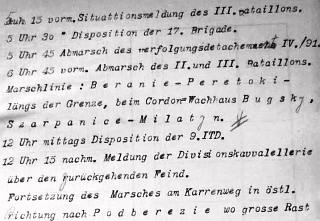 5 uh 15 vorm. Situattionsmeldung des III. Bataillons.
5 Uhr 30 " Disposition der 17. Brigade.
5 Uhr 45 Abmarsch des Verfolgungsdetachements IV./91.
6 Uhr 45 vorm. Abmarsch des II.und III. Bataillons.
Marschlinie : B e r a n i e - P e r e t o k i -
längs der Grenze, beim Cordon-Wachhaus B u g s k y,
S z a r p a n i c e - M i l a t y n.
12 Uhr mittags Disposition der 9.ITD.
12 Uhr 15 nachm. Meldung der Divisionskavvalellerie
über den zurückgehenden Feind.
Fortsetzung des Marsches am Karrenweg in östl.
Richtung nach P o d b e r e z i e wo grosse Rast